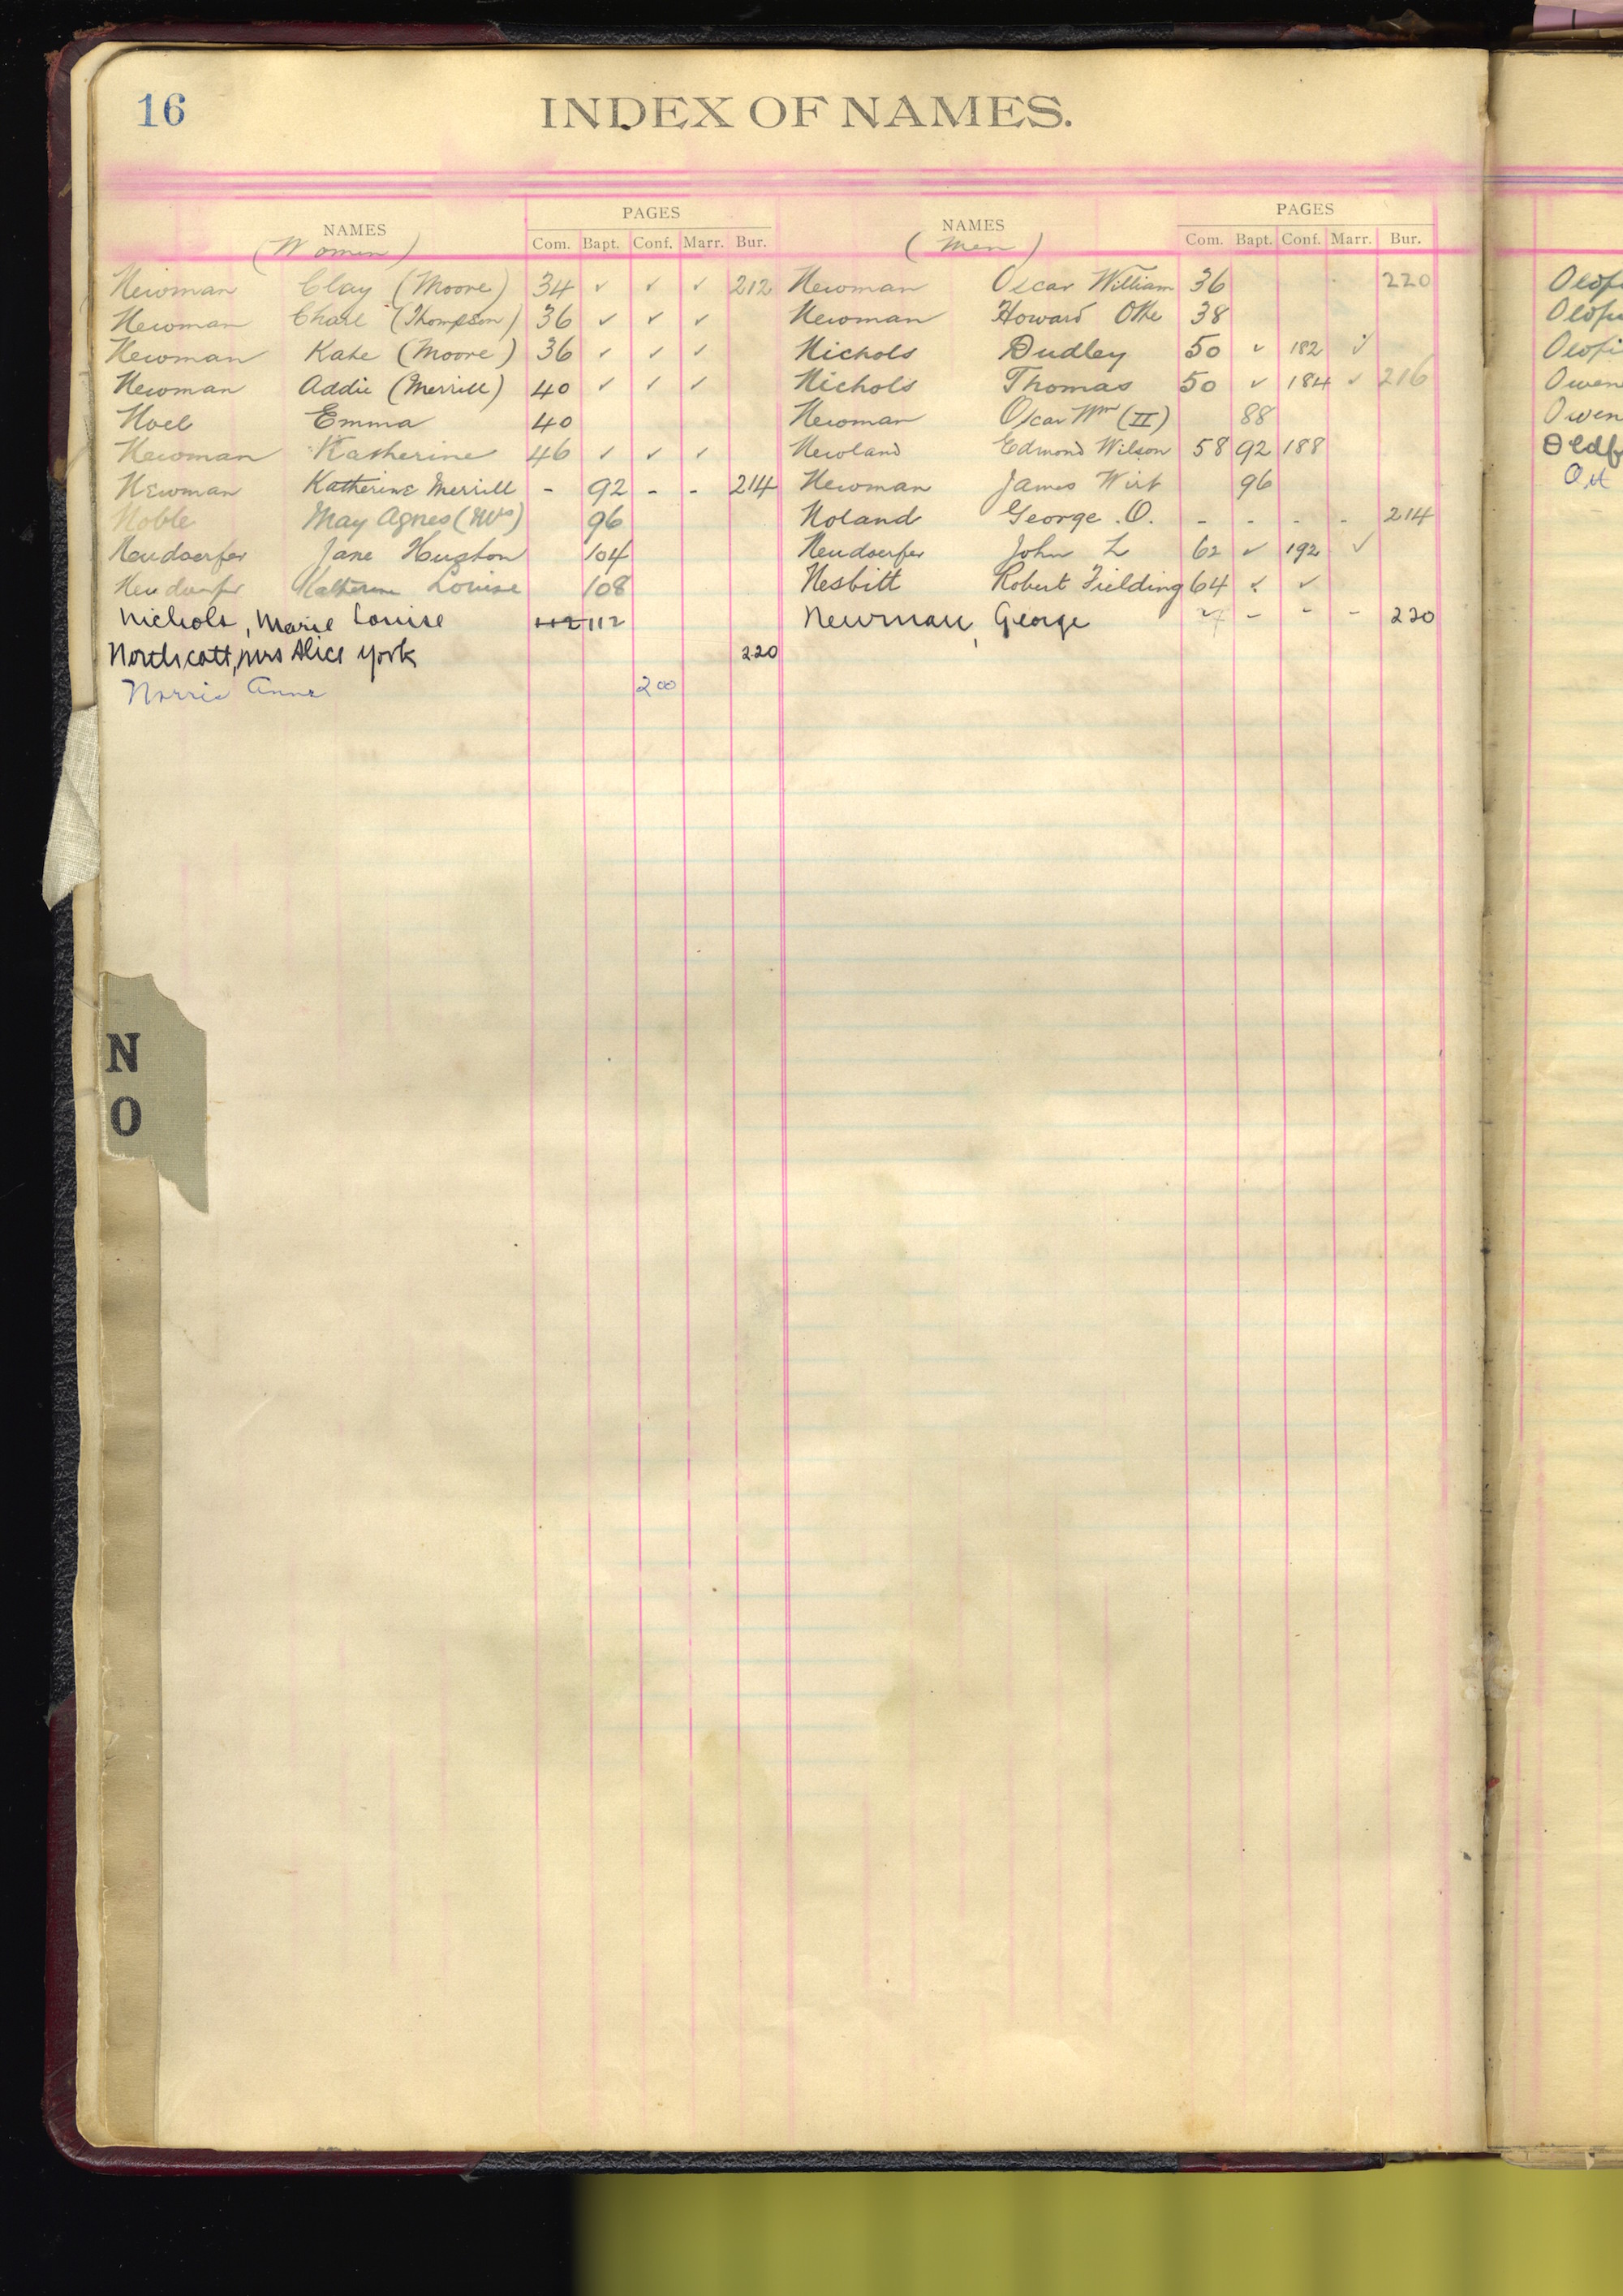 16
INDEX OF NAMES.
NAMES (Women) PAGES Com. Bapt. Conf. Marr. Bur.
Newman Clay (Moore) 34 ✓ ✓ ✓ 212
Newman (Thompson) 36 ✓ ✓ ✓
Newman Kate (Moore) 36 ✓ ✓ ✓
Newman Addie (Merrill) 40 ✓ ✓ ✓
Noel Emma 40
Newman Katherine 46 ✓ ✓ ✓
Newman Katherine Merrill - 92 - - 214
Noble May Agnes (Mrs) 96
Neudoerfer Jane Huston 104
Neudorfer Katherine Louise 108
Nichols, Marie Louise 112 112
Northcott, Mrs Alice York 220
Norris Anne 200
NAMES (Men) PAGES Com. Bapt. Conf. Marr. Bur.
Newman Oscar William 36 220
Newman Howard 38
Nichols Dudley 50 ✓ 182 ✓
Nichols Thomas 50 ✓ 184 ✓ 216
Newman Oscar Wm (II) 88
Newland Edmond Wilson 58 92 188
Newman James Wirt 96
Noland George O. - - - - 214
Neudoerfer John L 62 ✓ 192 ✓
Nesbitt Robert Fielding 64 ✓ ✓
Newman, George - - - 220
N
O